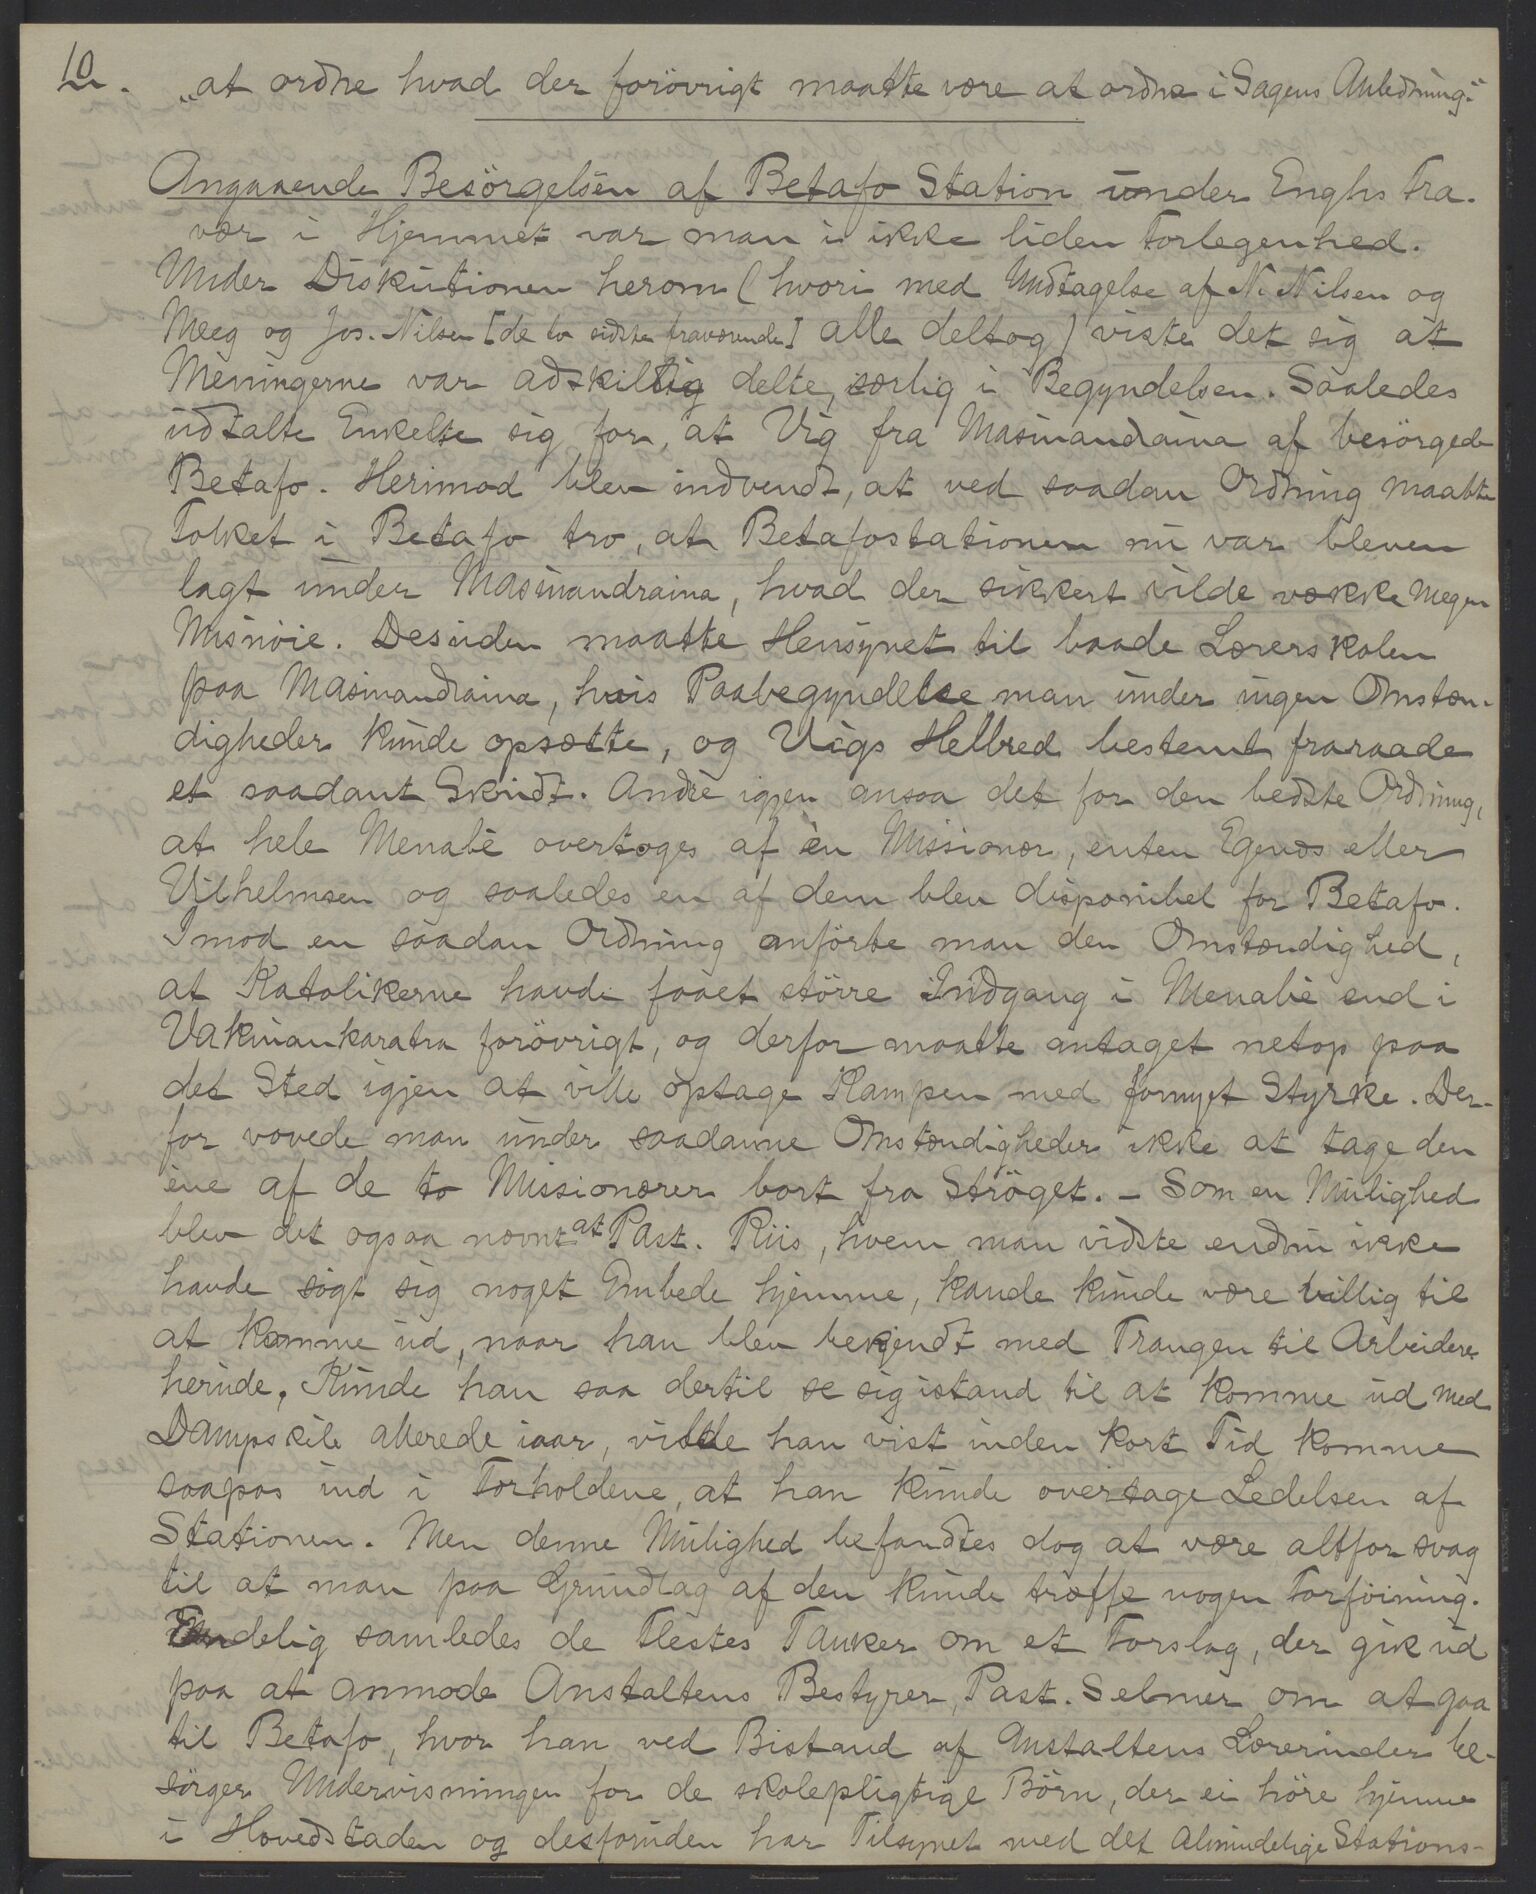 10. „at ordne hvad der forövrigt maatte være at ordne i Sagens Anledning."
Angaaende Besörgelsen af Betafo Station under Enghs Fra-
vær i Hjemmet var man i ikke liden Forlegenhed.
Under Diskutionen herom (hvori med Undtagelse af N. Nilsen og
Meeg og Jos. Nilsen [de to sidste fraværende] alle deltog) viste det sig at
Meningerne var adskillig delte, særlig i Begyndelsen. Saaledes
udtalte Enkelte sig for, at Vig fra Masinandraina af besörgede
Betafo. Herimod blev indvendt, at ved saadan Ordning maatte
Folket i Betafo tro, at Betafostationen nu var bleven
lagt under Masinandraina, hvad der sikkert vilde vække megen
Misnöie. Desuden maatte Hensynet til baade Lærerskolen
paa Masinandraina, hvis Paabegyndelse man under ingen Omstæn-
digheder kunde opsætte, og Vigs Helbred bestemt fraraade
et saadant Skridt. Andre igjen ansaa det for den bedste Ordning,
at hele Menabe overtoges af èn Missionær, enten Egenæs eller
Vilhelmsen og saaledes en af dem blev disponibel for Betafo.
Imod en saadan Ordning anförte man den Omstændighed,
at Katolikerne havde faaet större Indgang i Menabe end i
Vakinankaratra forövrigt, og derfor maatte antaget netop paa
det Sted igjen at ville optage Kampen med fornyet Styrke. Der-
for vovede man under saadanne Omstændigheder ikke at tage den
ene af de to Missionærer bort fra Ströget. – Som en Mulighed
blev det ogsaa nævnt at Past. Riis, hvem man vidste endnu ikke
havde sögt sig noget Embede hjemme, kande kunde være villig til
at komme ud, naar han blev bekjendt med Trangen til Arbeidere
herude. Kunde han saa dertil se sig istand til at komme ud med
Dampskib allerede iaar, vilde han vist inden kort Tid komme
saapas ind i Forholdene, at han kunde overtage Ledelsen af
Stationen. Men denne Mulighed befandtes dog at være altfor svag
til at man paa Grundlag af den kunde træffe nogen Forföining.
Endelig samledes de Flestes Tanker om et Forslag, der gik ud
paa at anmode Anstaltens Bestyrer, Past. Selmer om at gaa
til Betafo, hvor han ved Bistand af Anstaltens Lærerinder be-
sörger Undervisningen for de skolepligtige Börn, der ei höre hjemme
i Hovedstaden og desforuden har Tilsynet med det almindelige Stations-